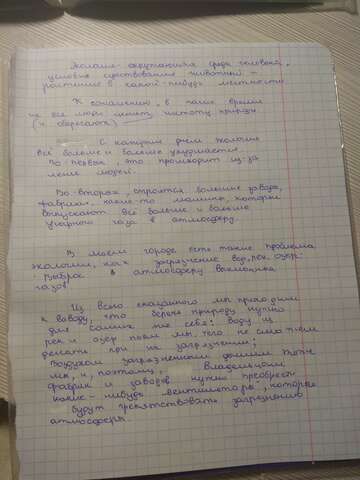 Экология - окружающая среда человека,
условие существования животной -
растение в какой-нибудь местности
К сожалению, в наше время
не все люди ценят чистоту природы
(и сберегают)
С каждым днём экология
всё больше и больше ухудшается.
Во-первых, это происходит из-за
лени людей.
Во-вторых, строятся большие завода,
фабрики, какие-то машины, которые
выпускают всё больше и больше
угарного газа в атмосферу.
В моём городе есть такие проблема
экологии, как загрязнение вод, рек, озер.
Выброс в атмосферу
газов
Из всего сказанного мы приходим
к выводу, что беречь природу нужно
для самих же себя: воду из
рек и озер пьём мы, чего не сможем
делать при их загрязнении;
Воздухом загрязнённым дышим тоже
мы, и, поэтому, Владельцам
фабрик и заводов нужно приобрести
какие-нибудь "вентиляторы", которые
будут препятствовать загрязнению
атмосферы